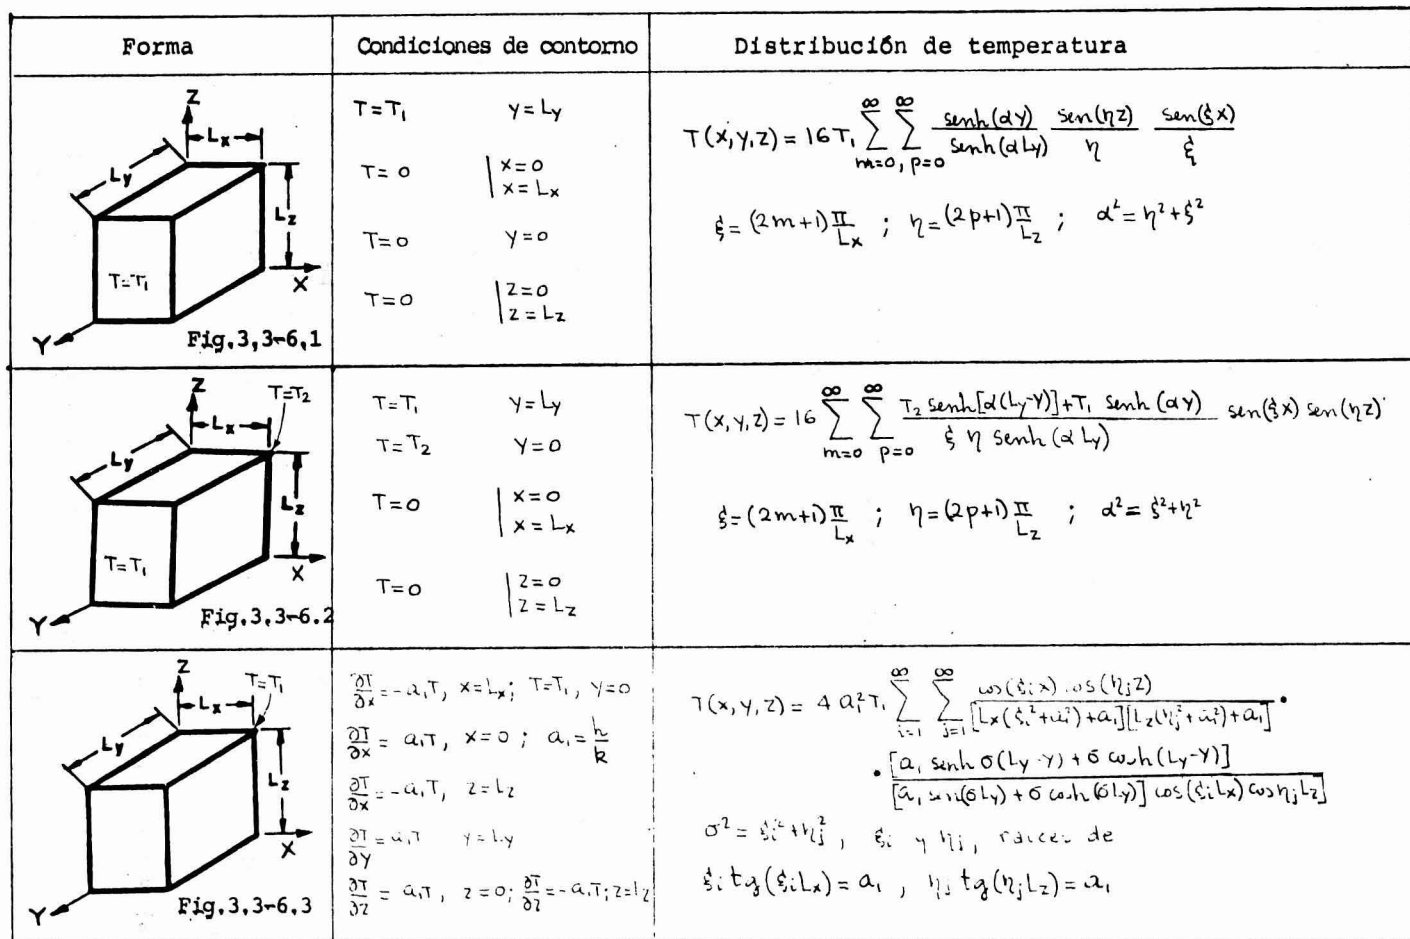 Forma
Condiciones de contorno
Distribución de temperatura
Z
Lx
Ly
Lz
T=T₁
X
Y
Fig.3,3-6,1
T=T₁ y=Ly
T=0 |x=0
x=Lx
T=0 y=0
T=0 |z=0
z=Lz
T(x,y,z)=16T₁ ∑_{m=0,}^{∞} ∑_{p=0}^{∞} senh(αy)/senh(αLy) sen(ηz)/η sen(ξx)/ξ
ξ=(2m+1)π/Lx ; η=(2p+1)π/Lz ; α²=η²+ξ²
Z
T=T₂
Lx
Ly
Lz
T=T₁
X
Y
Fig.3.3-6.2
T=T₁ y=Ly
T=T₂ y=0
T=0 |x=0
x=Lx
T=0 |z=0
z=Lz
T(x,y,z)=16 ∑_{m=0}^{∞} ∑_{p=0}^{∞} T₂ senh[α(Ly-y)]+T₁ senh(αy)/ξ η senh(αLy) sen(ξx) sen(ηz)
ξ=(2m+1)π/Lx ; η=(2p+1)π/Lz ; α²=ξ²+η²
Z
T=T₁
Lx
Ly
Lz
X
Y
Fig.3,3-6.3
∂T/∂x=-a₁T, x=Lx; T=T₁, y=0
∂T/∂x=a₁T, x=0 ; a₁=h/k
∂T/∂x=-a₁T, z=Lz
∂T/∂y=a₁T y=Ly
∂T/∂z=a₁T, z=0; ∂T/∂z=-a₁T; z=Lz
T(x,y,z)= 4 a₁²T₁ ∑_{i=1}^{∞} ∑_{j=1}^{∞} cos(ξᵢx) cos(ηⱼz)/[Lx(ξᵢ²+a₁²)+a₁][Lz(ηⱼ²+a₁²)+a₁] •
• [a₁ senh σ(Ly-y)+σ cosh(Ly-y)]/[a₁ sen(σLy)+σ cosh(σLy)] cos(ξᵢLx) cos ηⱼLz]
σ²=ξᵢ²+ηⱼ², ξᵢ y ηⱼ, raices de
ξᵢ tg(ξᵢLx)=a₁ , ηⱼ tg(ηⱼLz)=a₁